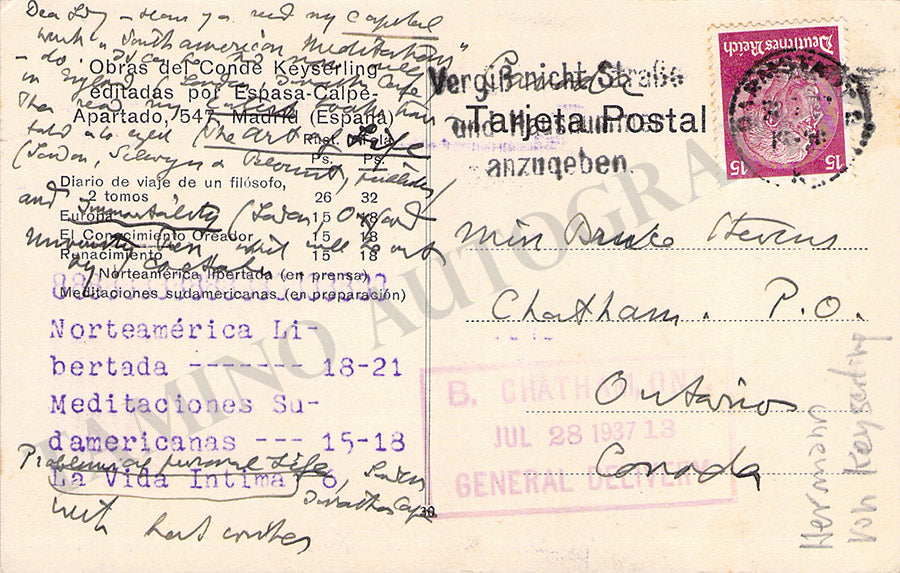 Dear Lady – have you read my capital
work "South American Meditations"
– do.
in England London Jonathan Cape
Then read my
(The Art of Life
(London, Selwyn & Blount,
and Immortality (London, Oxford
University Press) which will be out
by October
Obras del Conde Keyserling
editadas por Espasa-Calpe-
Apartado, 547. Madrid (España)
Rúst. Tela
Ps. Ps.
Diario de viaje de un filósofo,
2 tomos 26 32
Europa 15 18
El Conocimiento Creador 15 18
Renacimiento 15 18
Norteamérica libertada (en prensa)
Meditaciones sudamericanas (en preparación)
Norteamérica Li-
bertada ------- 18-21
Meditaciones Su-
damericanas --- 15-18
La Vida Intima 6,
Problems of personal Life, London
Jonathan Cape
with best wishes
30
Vergiß nicht Straße
und Hausnummer
anzugeben.
Tarjeta Postal
Deutsches Reich
15 15
Miss Bruce Stevens
Chatham. P.O.
Ontario
Canada
B. CHATHAM, ONT.
JUL 28 1937 13
GENERAL DELIVERY
Hermann
von Keyserling
TAMINO AUTOGRA